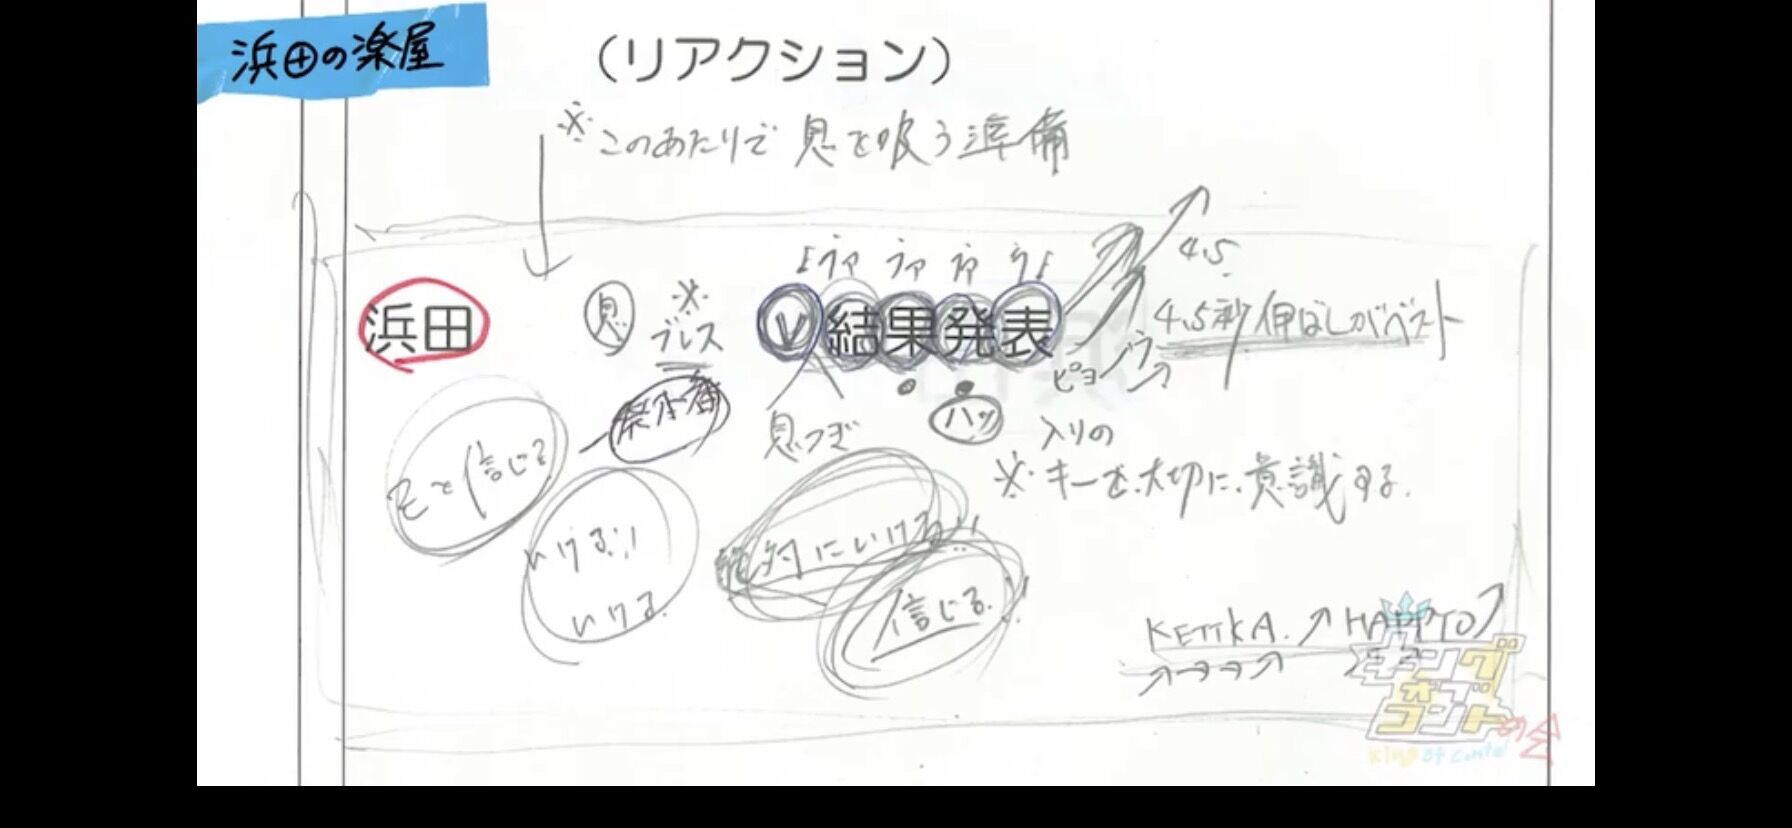 浜田の楽屋
（リアクション）
※このあたりで息を吸う準備
♪ララララ♪
4.5
浜田
息
※
ブレス
V
結果発表
4.5秒伸ばしがベスト
ピョーンッ
ハッ
息つぎ
入りの
※キーを大切に、意識する。
もっと信じろ
いける!!
いける
絶対にいける!!
信じる!!
KETTKA. HAPPYO
キングオブコントの会
King of Conte